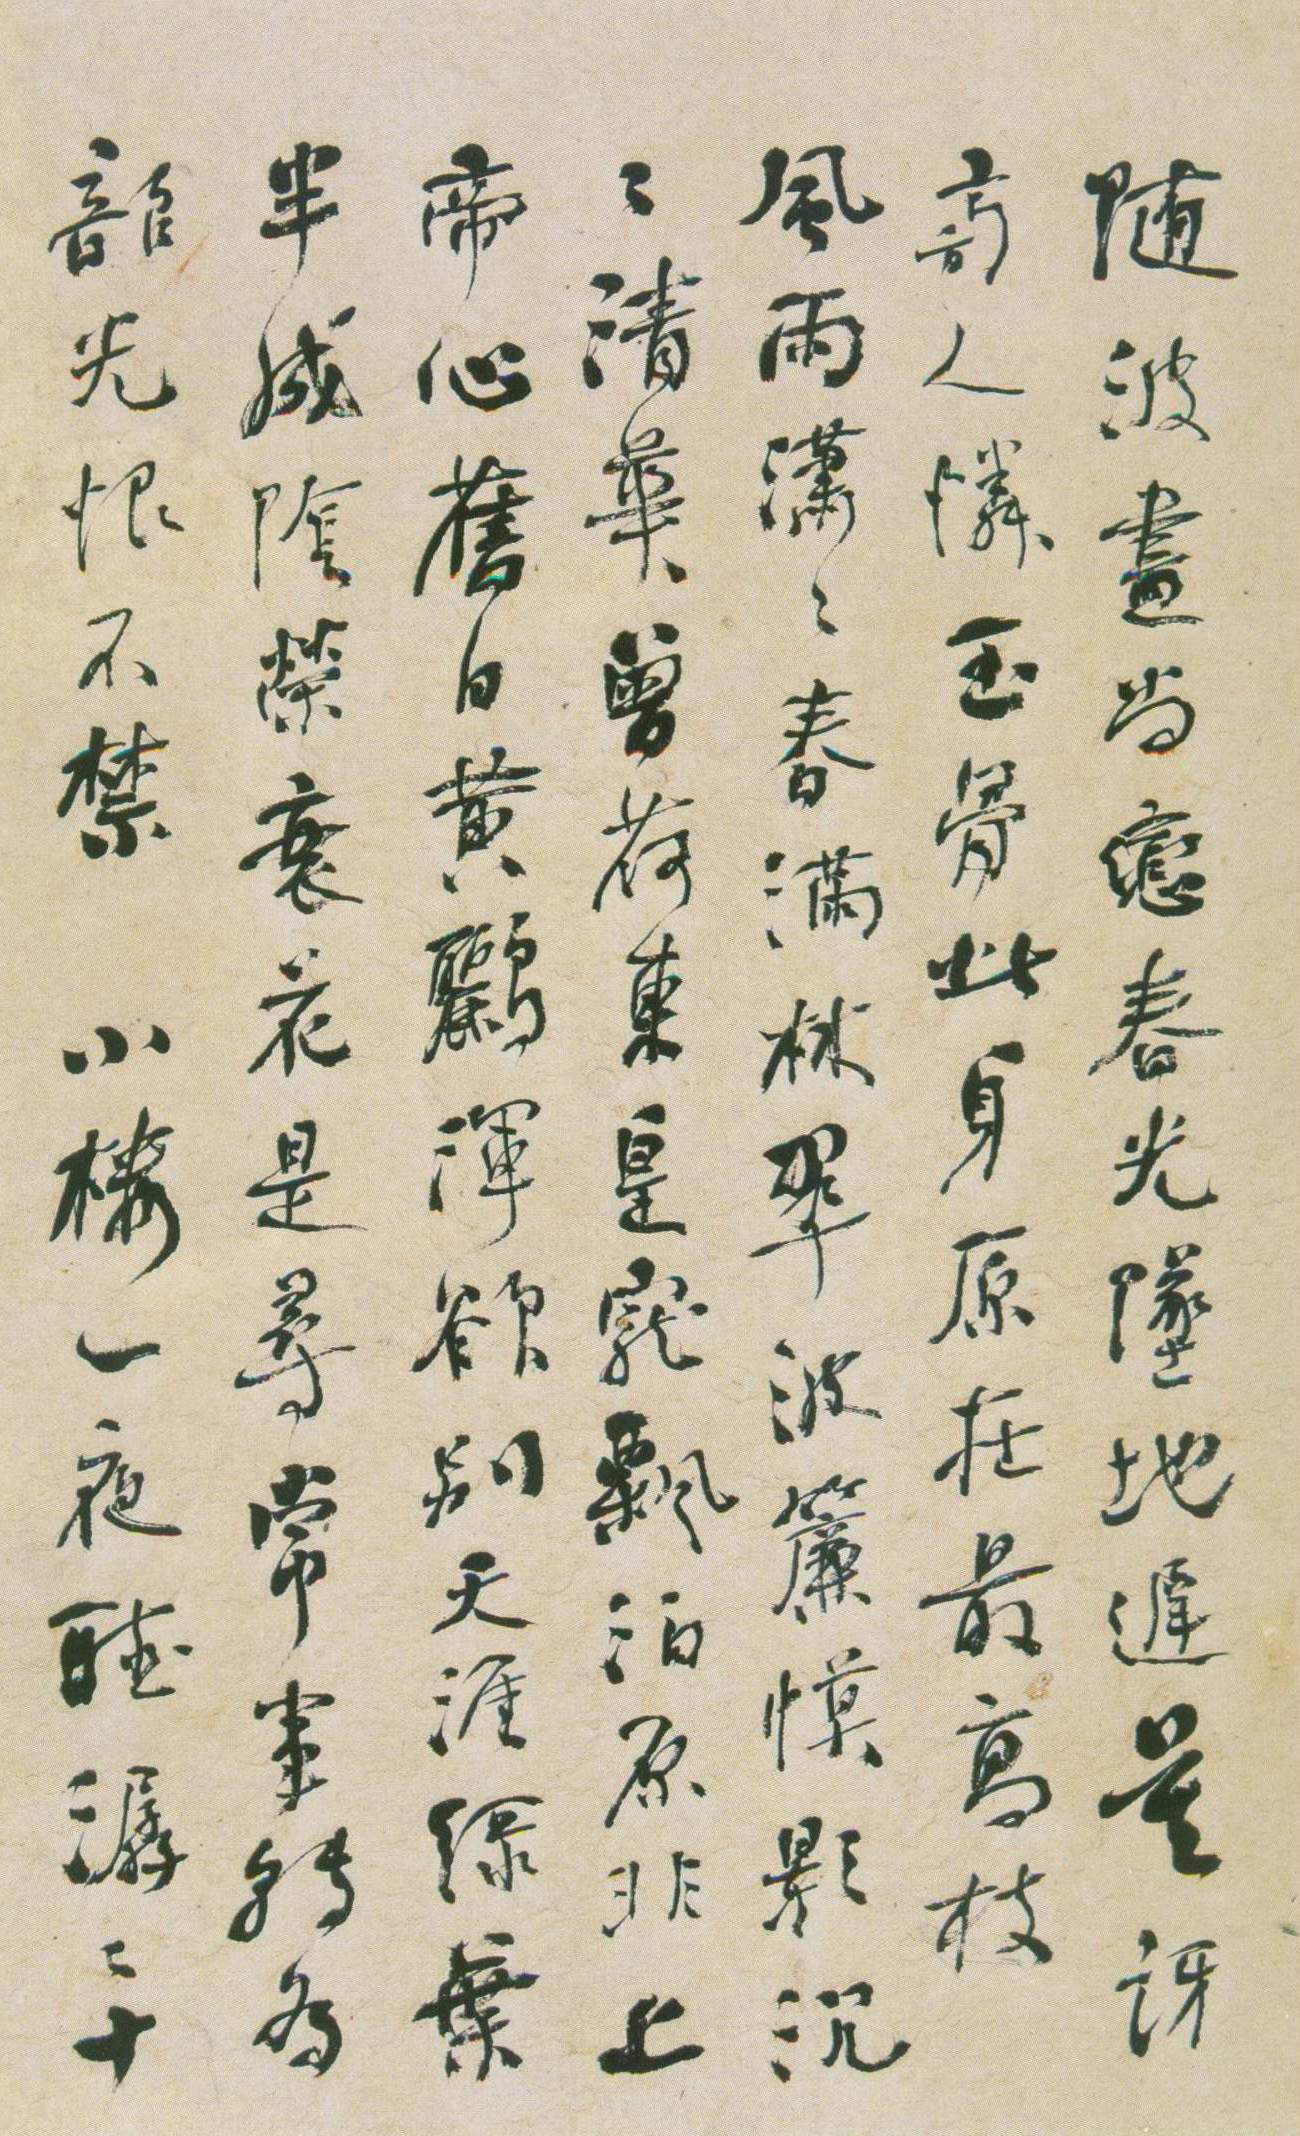 随波晝尚戀春光墜地遲莫訝
高人憐玉骨此身原在最高枝
風雨瀟々春滿林翠波簾幙影沉
々清華曾荷東皇寵飄泊原非上
帝心舊日黃鸝渾欲別天涯綠葉
半成陰榮衰花是尋常事轉為
韶光恨不禁 小樓一夜聽潺々十